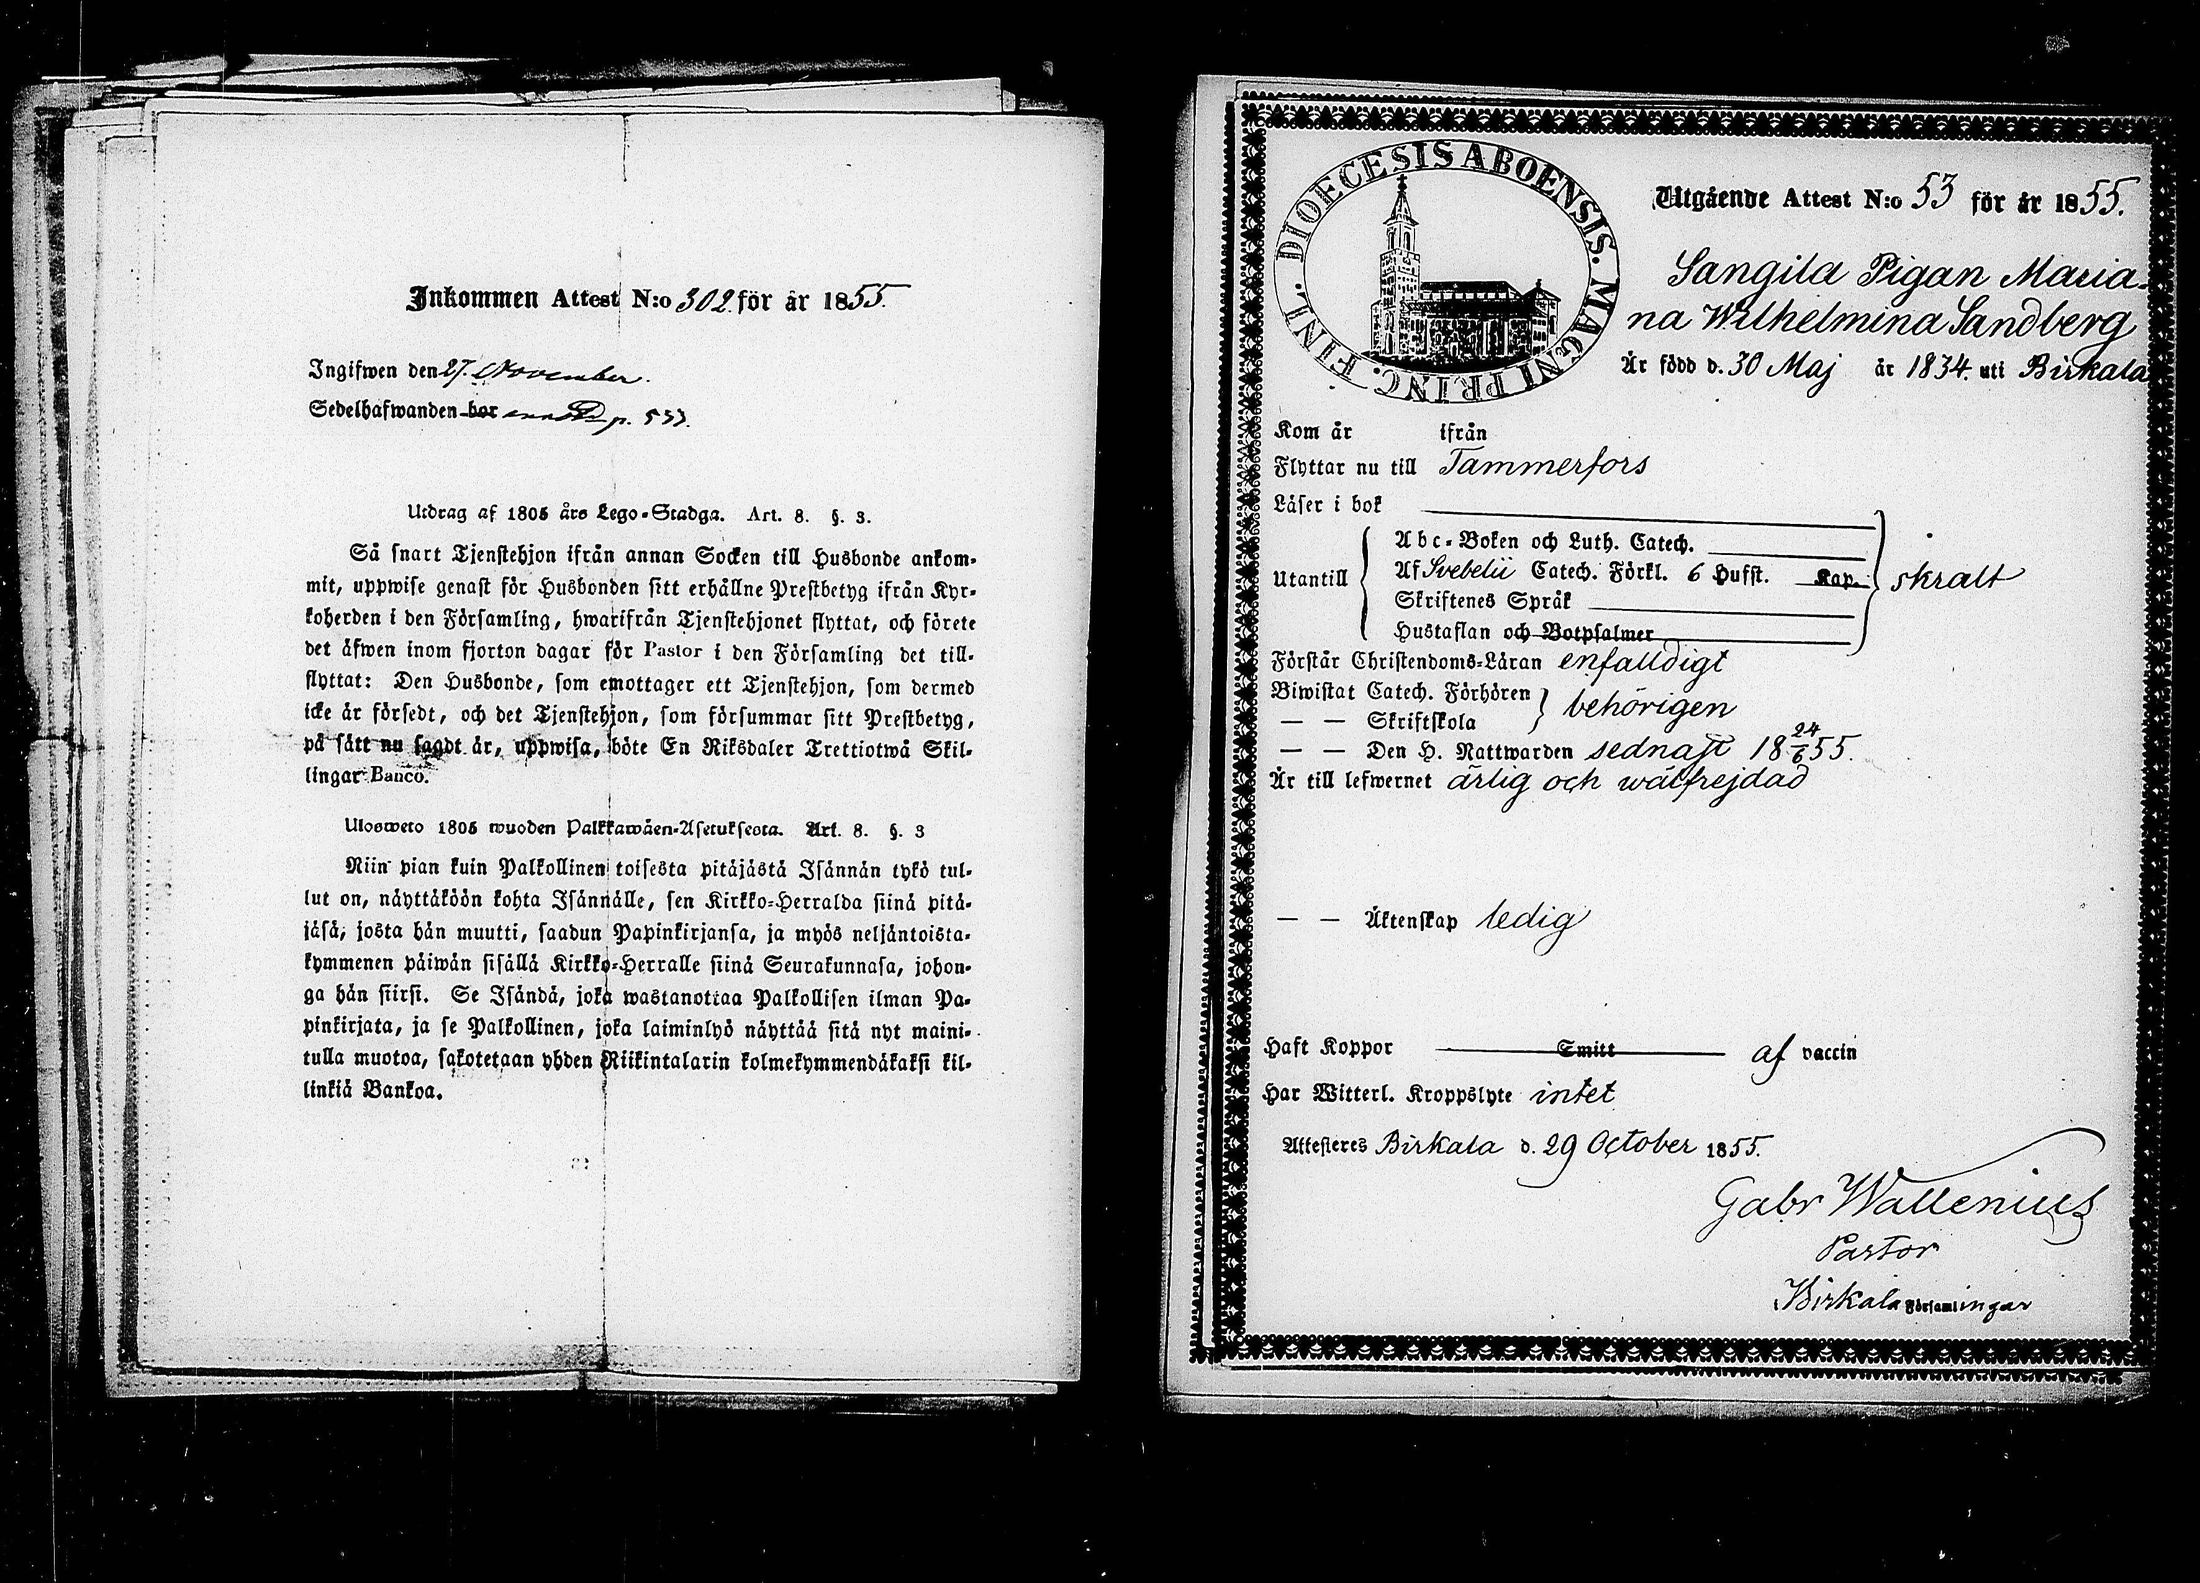 Inkommen Attest N:o 302. för år 1855.
Ingifwen den 27. November.
Sedelhafwanden bor p. 533.
Utdrag af 1805 års Lego-Stadga. Art. 8. §. 3.
Så snart Tjenstehjon ifrån annan Socken till Husbonde ankom-
mit, uppwise genast för Husbonden sitt erhållne Prestbetyg ifrån Kyr-
koherden i den Församling, hwarifrån Tjenstehjonet flyttat, och förete
det äfwen inom fjorton dagar för Pastor i den Församling det till-
flyttat: Den Husbonde, som emottager ett Tjenstehjon, som dermed
icke är försedt, och det Tjenstehjon, som försummar sitt Prestbetyg,
på sätt nu sagdt är, uppwisa, böte En Riksdaler Trettiotwå Skil-
lingar Banco.
Ulosweto 1805 wuoden Palkkawäen-Asetuksesta. Art. 8. §. 3
Niin pian kuin Palkollinen toisesta pitäjästä Isännän tykö tul-
lut on, näyttäköön kohta Isännälle, sen Kirkko-Herralda siinä pitä-
jäsä, josta hän muutti, saadun Papinkirjansa, ja myös neljäntoista-
kymmenen päiwän sisällä Kirkko-Herralle siinä Seurakunnasa, johon-
ga hän siirsi. Se Isändä, joka wastanottaa Palkollisen ilman Pa-
pinkirjata, ja se Palkollinen, joka laiminlyö näyttää sitä nyt maini-
tulla muotoa, sakotetaan yhden Riikintalarin kolmekymmendäkaksi kil-
linkiä Bankoa.
DIOECESIS ABOENSIS. MAGNI PRINC. FINL.
Utgående Attest N:o 53 för år 1855.
Sangila Pigan Maria-
na Wilhelmina Sandberg
Är född d. 30 Maj år 1834. uti Birkala
Kom år ifrån
Flyttar nu till Tammerfors
Läser i bok
Utantill
Abc-Boken och Luth. Catech.
Af Svebelii Catech. Förkl. 6 Hufst. Kap.
Skriftenes Språk
Hustaflan och Botpsalmer
skralt
Förstår Christendoms-Läran enfalldigt
Biwistat Catech. Förhören
— — Skriftskola
behörigen
— — Den H. Nattwarden sednast 18 24/6 55.
Är till lefwernet ärlig och wälfrejdad
— — Äktenskap ledig
Haft Koppor Smitt af vaccin
Har Witterl. Kroppslyte intet
Attesteres Birkala d. 29 October 1855.
Gabr Wallenius
Pastor
Birkala Församlingar